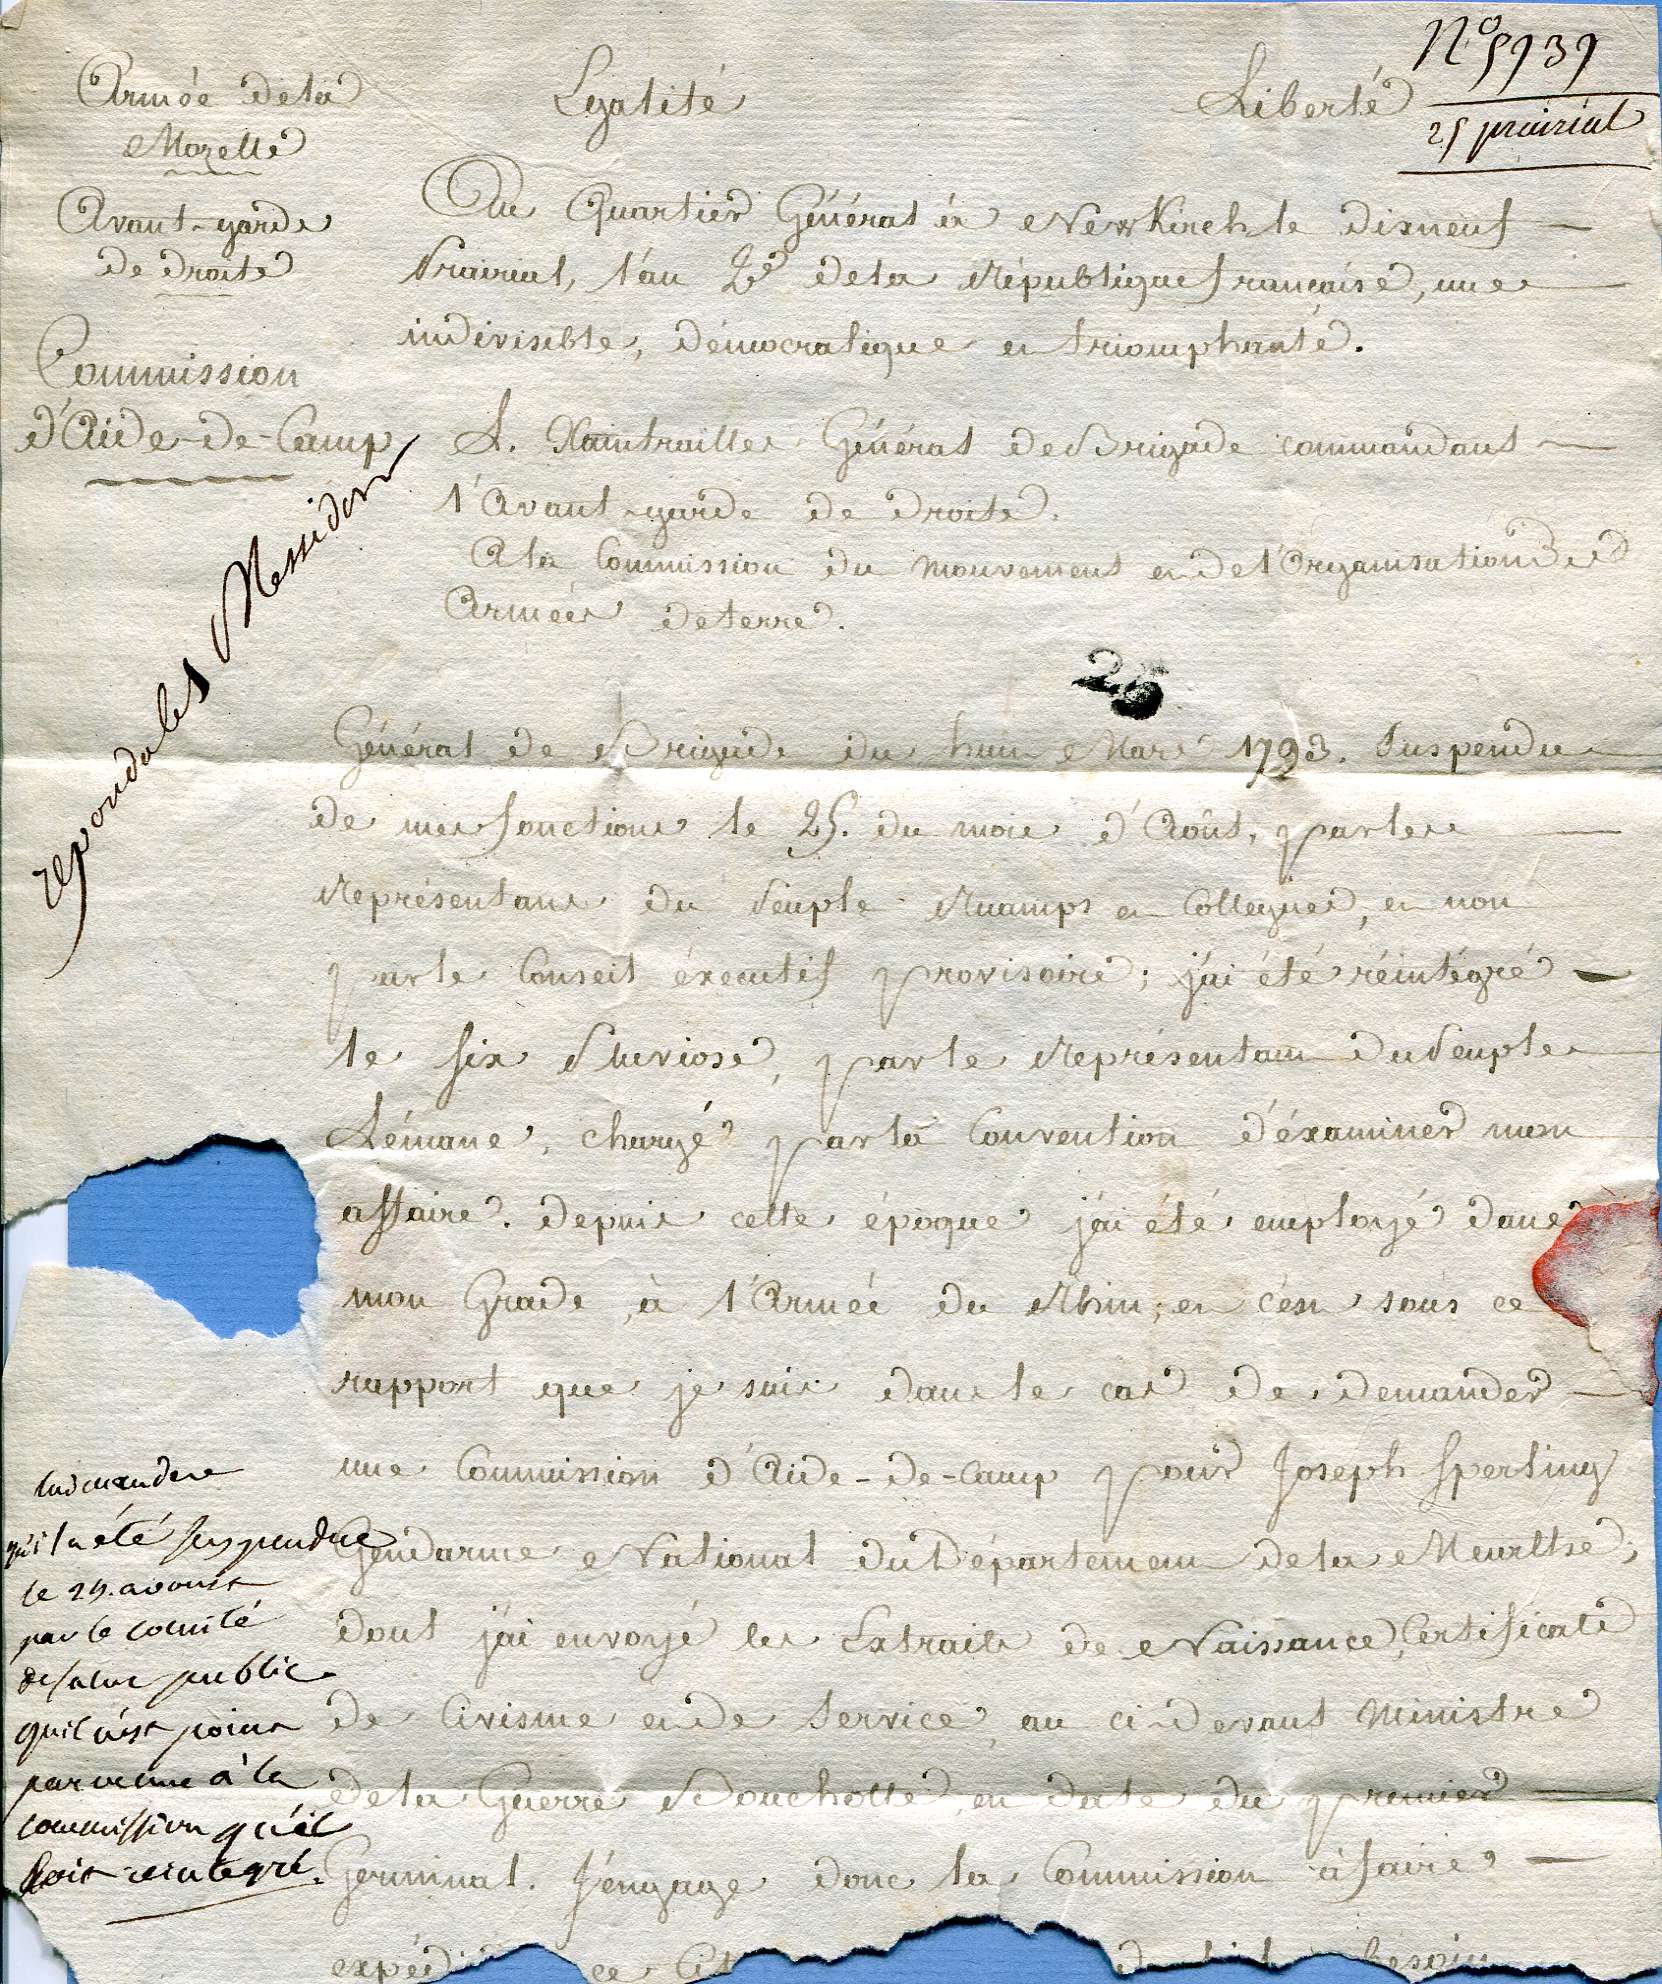 N° 5939
25 prairial
Armée de la
Mozelle
Avant-garde
de droite
Commission
d'Aide-de-Camp
Egalité Liberté
Au Quartier Général à NewKirch le dixneuf
Prairial, l'an 2e de la République française, une
indivisible, démocratique et triomphante.
L. Xaintrailles Général de Brigade commandant
l'Avant-garde de droite.
A la Commission du mouvement et de l'Organisation des
Armées de terre.
repondu le 1 Messidor
25
Général de Brigade du huit Mars 1793. Suspendu
de mes fonctions le 25. du mois d'Août, par les
Représentans du Peuple Ruamps et Collegues, et non
par le Conseil éxecutif provisoire; j'ai été réintégré
le six Pluviose, par le Représentant du Peuple
Lémane, chargé par la Convention d'éxaminer mon
affaire. depuis cette époque j'ai été employé dans
mon Grade, à l'Armée du Rhin; et c'est sous ce
rapport que je suis dans le cas de demander
une Commission d'Aide-de-Camp pour Joseph Sperling
Gendarme National du Département de la Meurthe;
dont j'ai envoyé les Extraits de Naissance, Certificats
de Civisme et de Service, au ci-devant Ministre
de la Guerre Bouchotte, en date du premier
Germinal. J'engage donc la Commission à faire
expédi ce Cit besoin
lui mander
qu'il a été suspendu
le 25. aoust
par le comité
de salut public
qu'il n'est point
parvenu à la
commission qu'il
soit reintegré.